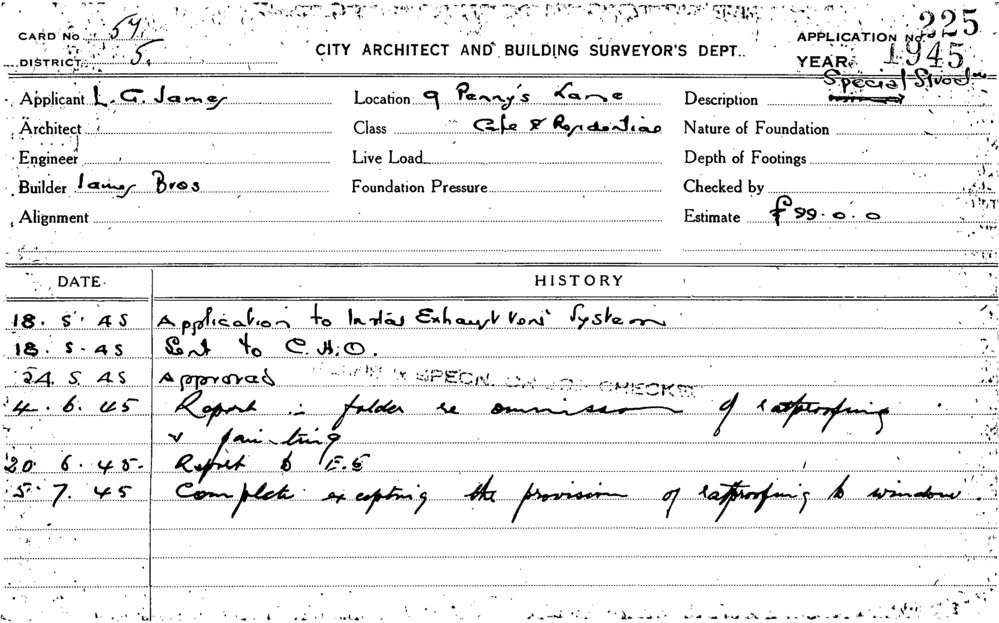 CARD No 54. APPLICATION No 225
DISTRICT 5. CITY ARCHITECT AND BUILDING SURVEYOR'S DEPT. YEAR 1945
Applicant L. G. James Location 9 Penny's Lane Description Special
Architect Class Cafe & Residential Nature of Foundation
Engineer Live Load Depth of Footings
Builder James Bros Foundation Pressure Checked by
Alignment Estimate £99.0.0
DATE HISTORY
18. 5. 45 Application to Instal Exhaust Vent System
18. 5. 45 Sent to C.H.O.
24. 5. 45 Approved SPECN. CHECKED
4. 6. 45 Report in folder re ommission of ratproofing
& painting
20. 6. 45. Report to
5. 7. 45 Complete excepting the provision of ratproofing to window.